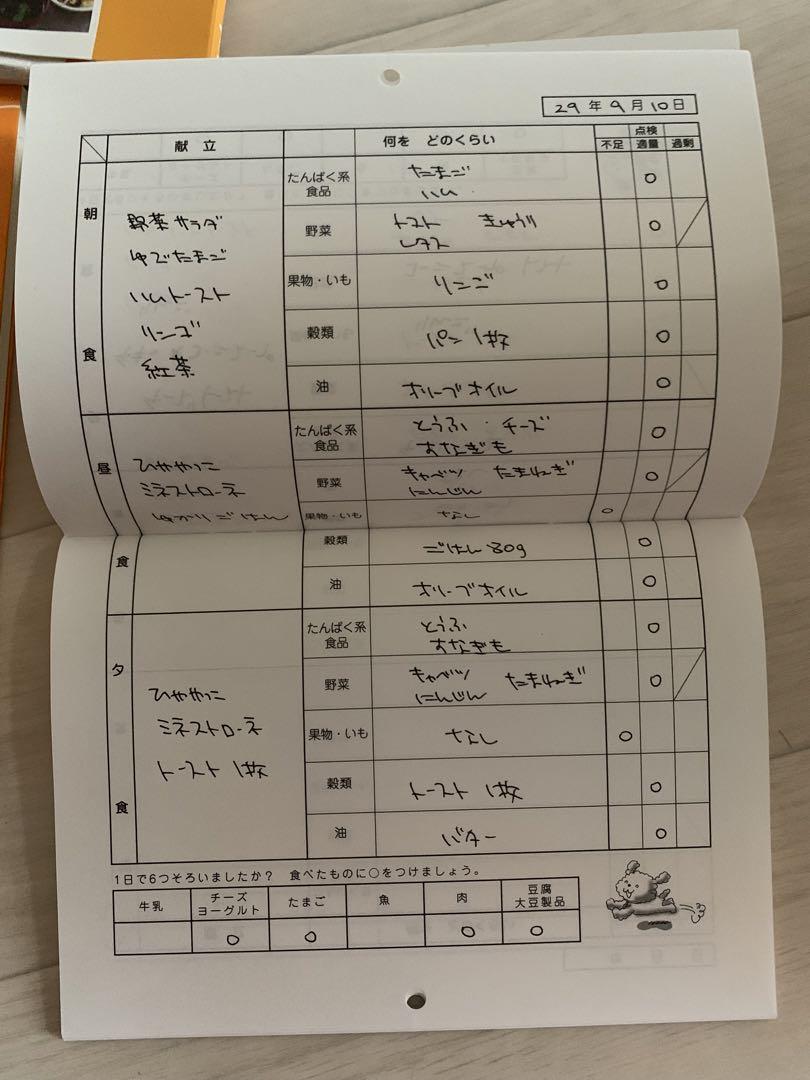 29年 9月 10日
献立 何を どのくらい 点検
不足 適量 過剰
朝食
野菜サラダ
ゆでたまご
ハムトースト
リンゴ
紅茶
たんぱく系食品 たまご ハム ○
野菜 トマト きゅうり レタス ○
果物・いも リンゴ ○
穀類 パン 1枚 ○
油 オリーブオイル ○
昼食
ひややっこ
ミネストローネ
ゆかりごはん
たんぱく系食品 とうふ チーズ すなぎも ○
野菜 キャベツ たまねぎ にんじん ○
果物・いも なし ○
穀類 ごはん 80g ○
油 オリーブオイル ○
夕食
ひややっこ
ミネストローネ
トースト 1枚
たんぱく系食品 とうふ すなぎも ○
野菜 キャベツ たまねぎ にんじん ○
果物・いも なし ○
穀類 トースト 1枚 ○
油 バター ○
1日で6つそろいましたか? 食べたものに○をつけましょう。
牛乳 チーズヨーグルト たまご 魚 肉 豆腐大豆製品
○ ○ ○ ○